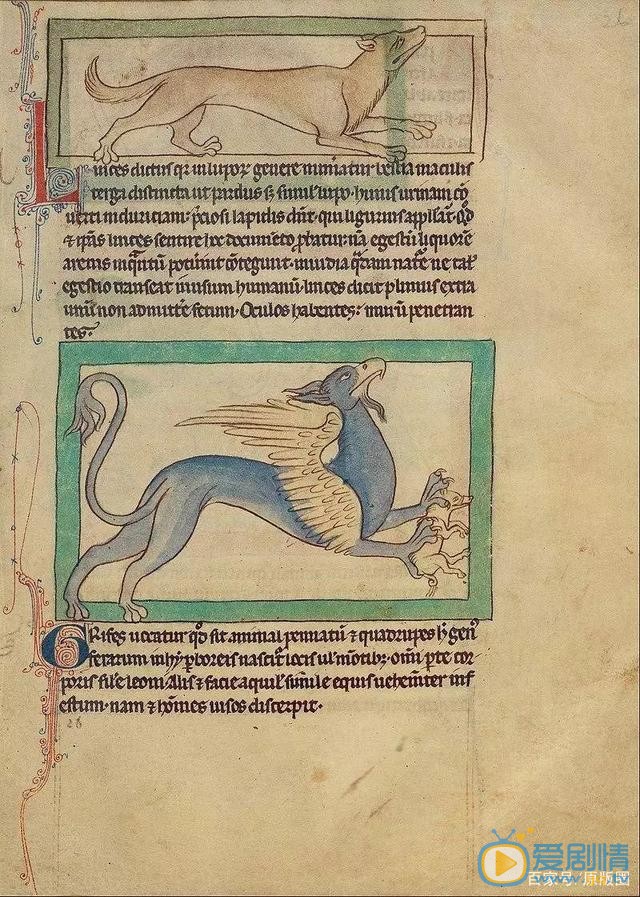 Linces dictus qr in luporꝝ genere mimatur bestia maculis
terga distincta ut pardus sꝫ simil' lupo. huius urinam cō
uerti in duriciam. p̄ciosi lapidis dnt̄. qui ligurius appllat̄. qd̄
⁊ ip̄as linces sentire hoc documēto ꝓbatur. nā egestū lyquorē
arenis inq̄ntū potuīnt cōtegunt. inuidia q̄dam nat̄e ne tal'
egestio transeat in usum humanū. linces dicit plinius extra
unū non admitt̄e fetum. Oculos habentes: murū penetran
tes.
GRifes uocatur qd̄ sit animal pennatū ⁊ quadrupes h̄ genꝰ
feratum in hyꝑboreis nascit̄ locis ul' mōtibꝫ. om̄i ꝑte cor
poris fil'e leoni. Alis ⁊ facie aquil' simile equis uehem̄ter inf
estum. nam ⁊ hōmes uisos discerpit.
26
爱剧情
百家号/原版图